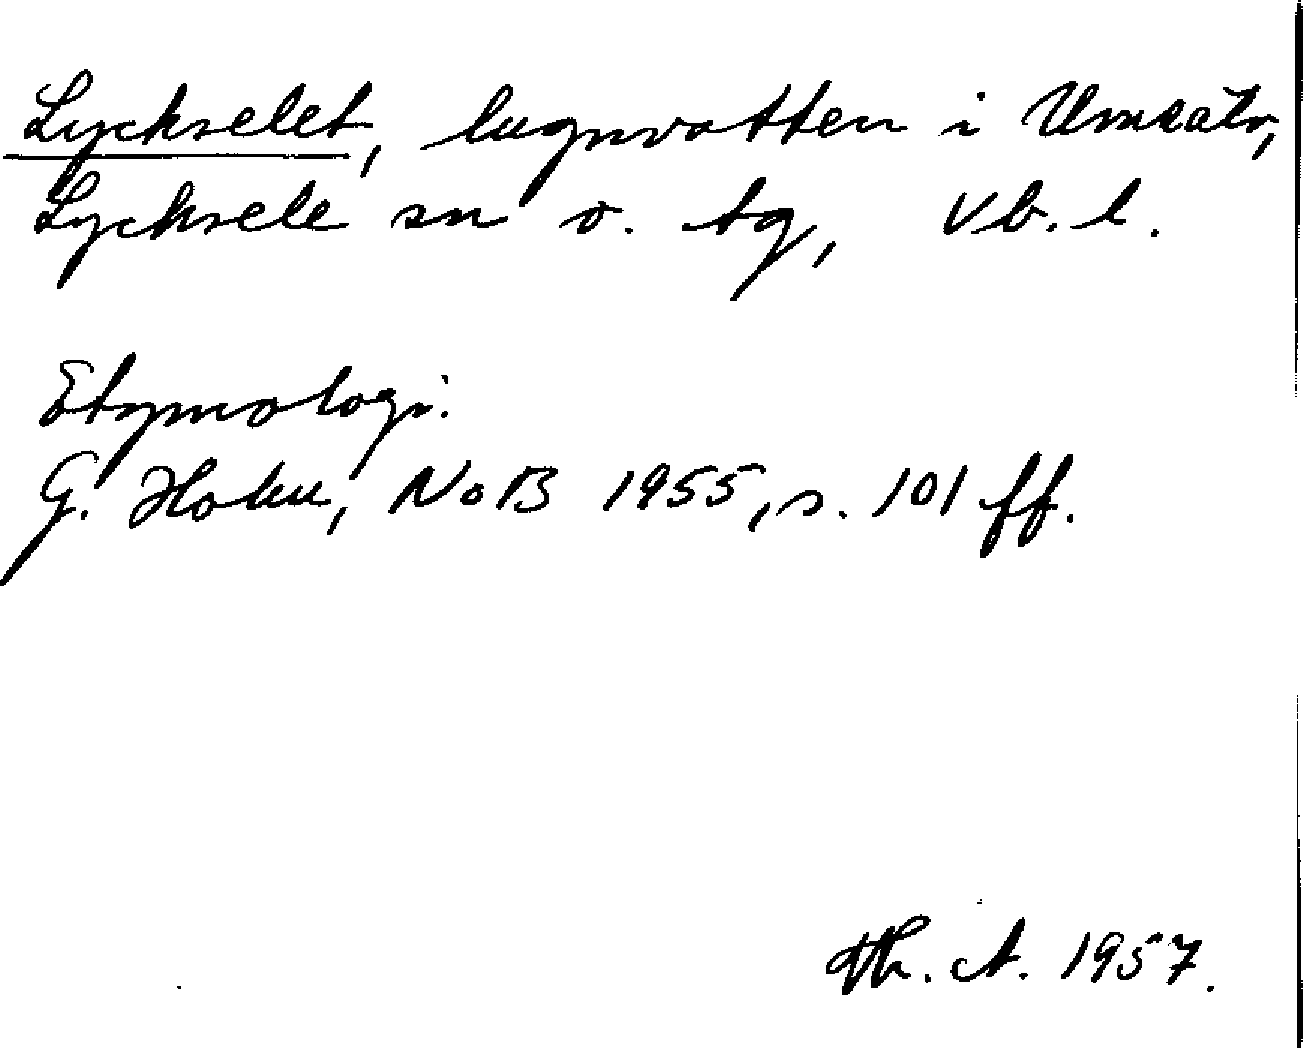 Lyckselet, lugnvatten i Umeälv,
Lycksele sn o. tg, Vb. l.
Etymologi.
G. Holm, NoB 1955, s. 101 ff.
Th. A. 1957.